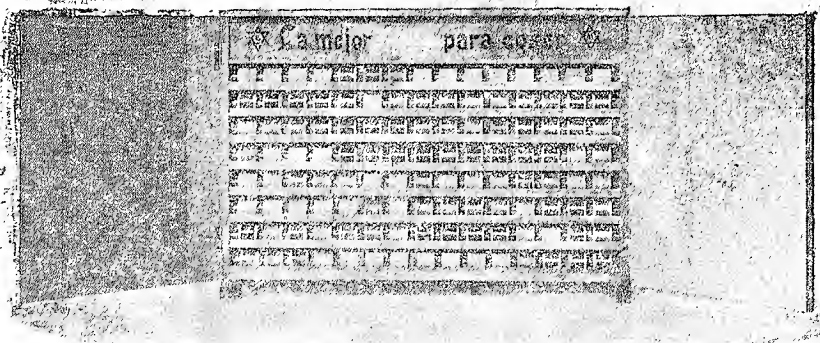 La mejor para coser